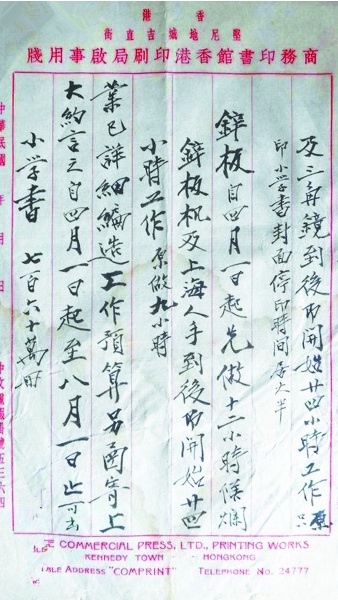 香港
堅尼地城吉直街
商務印書館香港印刷局啟事用牋
及三 鏡到後即開始廿四小時工作 原只
印小学書封面停印時間居大半
鋅板自四月一日起先做十二小時候爛
鋅板机及上海人手到後即開始廿四
小時工作 原做九小時
業已詳細編造工作預算另函寄上
大約言之自四月一日起至八月一日止可出
小学書 七百六十萬冊
中華民國 年 月 日 中文電報掛號五三六四
COMMERCIAL PRESS, LTD., PRINTING WORKS
KENNEDY TOWN HONGKONG
ADDRESS "COMPRINT" TELEPHONE No. 24777